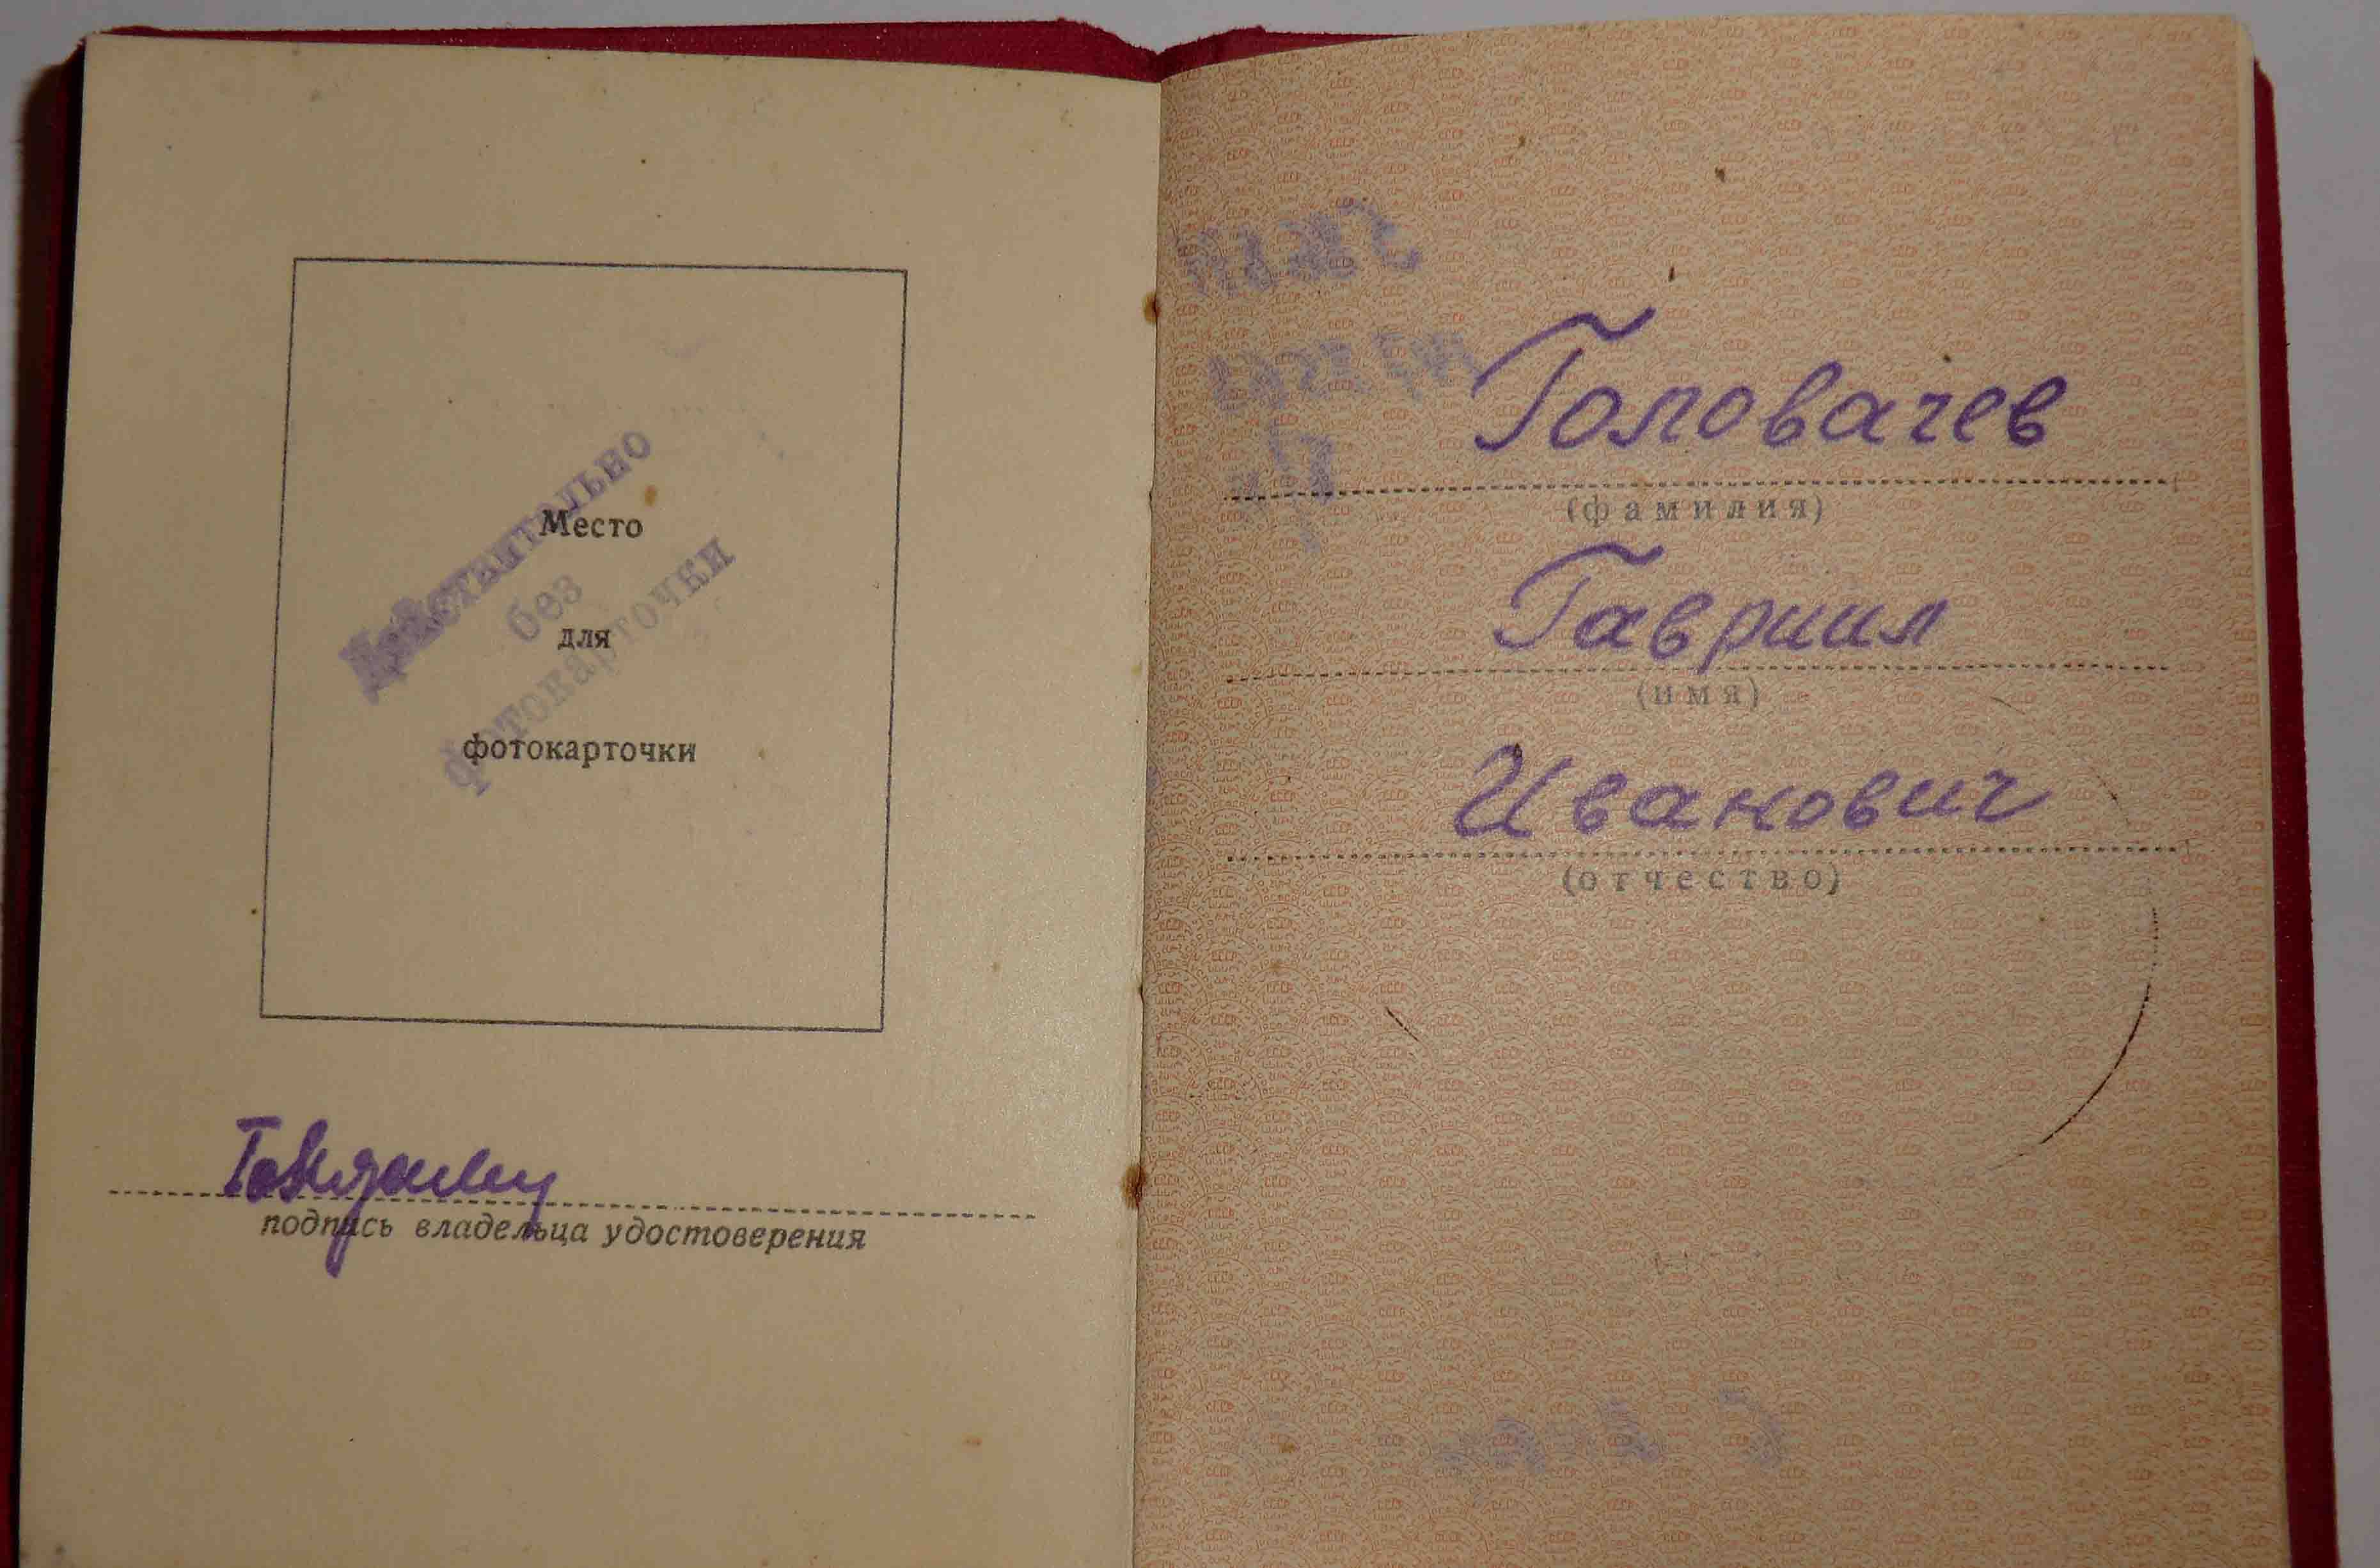 Действительно
Место
без
для
фотокарточки
фотокарточки
подпись владельца удостоверения
Головачев
(фамилия)
Гавриил
(имя)
Иванович
(отчество)